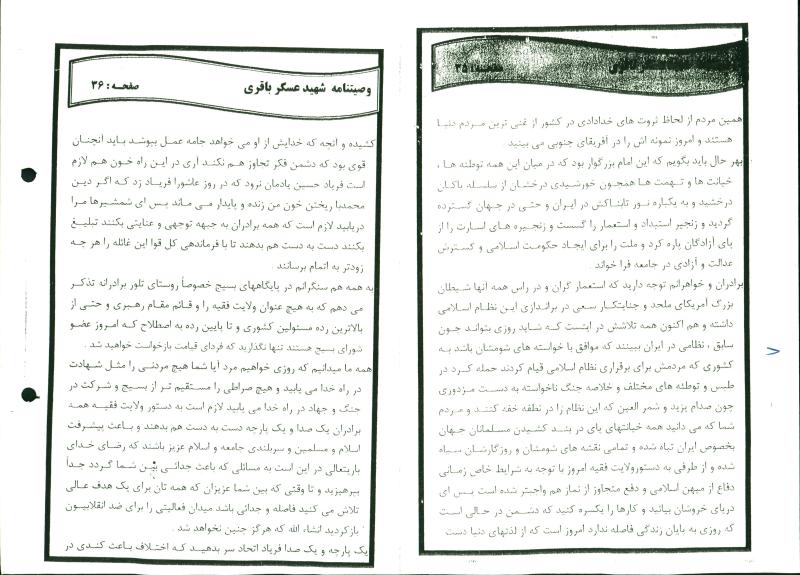 صفحه: ۳۵
همین مردم از لحاظ ثروت های خدادادی در کشور از غنی ترین مردم دنیا
هستند و امروز نمونه اش را در آفریقای جنوبی می بینید .
بهر حال باید بگویم که این امام بزرگوار بود که در میان این همه توطئه ها ،
خیانت ها و تهمت ها همچون خورشیدی درخشان از سلسله پاکان
درخشید و به یکباره نور تابناکش در ایران و حتی در جهان گسترده
گردید و زنجیر استبداد و استعمار را گسست و زنجیره های اسارت را از
پای آزادگان پاره کرد و ملت را برای ایجاد حکومت اسلامی و گسترش
عدالت و آزادی در جامعه فرا خواند.
برادران و خواهرانم توجه دارید که استعمار گران و در راس همه آنها شیطان
بزرگ آمریکای ملحد و جنایتکار سعی در براندازی این نظام اسلامی
داشته و هم اکنون همه تلاشش در اینست که شاید روزی بتواند چون
سابق ، نظامی در ایران ببینند که موافق با خواسته های شومشان باشد به
کشوری که مردمش برای برقراری نظام اسلامی قیام کردند حمله کرد در
طبس و توطئه های مختلف و خلاصه جنگ ناخواسته به دست مزدوری
چون صدام یزید و شمر العین که این نظام را در نطفه خفه کنند و مردم
شما که می دانید همه خیانتهای پای در بند کشیدن مسلمانان جهان
بخصوص ایران تباه شده و تمامی نقشه های شومشان و روزگارشان سیاه
شده و از طرفی به دستورولایت فقیه امروز با توجه به شرایط خاص زمانی
دفاع از میهن اسلامی و دفع متجاوز از نماز هم واجبتر شده است پس ای
دریای خروشان بیائید و کارها را یکسره کنید که دشمن در حالی است
که روزی به پایان زندگی فاصله ندارد امروز است که از لذتهای دنیا دست
وصیتنامه شهید عسکر باقری
صفحه: ۳۶
کشیده و آنچه که خدایش از او می خواهد جامه عمل بپوشد باید آنچنان
قوی بود که دشمن فکر تجاوز هم نکند آری در این راه خون هم لازم
است فریاد حسین یادمان نرود که در روز عاشورا فریاد زد که اگر دین
محمدبا ریختن خون من زنده و پایدار می ماند پس ای شمشیرها مرا
دریابید لازم است که همه برادران به جبهه توجهی و عنایتی بکنند تبلیغ
بکنند دست به دست هم بدهند تا با فرماندهی کل قوا این غائله را هر چه
زودتر به اتمام برسانند .
به همه هم سنگرانم در پایگاههای بسیج خصوصاً روستای تلور برادرانه تذکر
می دهم که به هیچ عنوان ولایت فقیه را و قائم مقام رهبری و حتی از
بالاترین رده مسئولین کشوری و تا پایین رده به اصطلاح که امروز عضو
شورای بسیج هستند تنها نگذارید که فردای قیامت بازخواست خواهید شد .
همه ما میدانیم که روزی خواهیم مرد آیا شما هیچ مردنی را مثل شهادت
در راه خدا می یابید و هیچ صراطی را مستقیم تر از بسیج و شرکت در
جنگ و جهاد در راه خدا می یابید لازم است به دستور ولایت فقیه همه
برادران یک صدا و یک پارچه دست به دست هم بدهند و باعث پیشرفت
اسلام و مسلمین و سربلندی جامعه و اسلام عزیز باشند که رضای خدای
باریتعالی در این است به مسائلی که باعث جدائی بین شما گردد جداً
بپرهیزید و تا وقتی که بین شما عزیزان که همه تان برای یک هدف عالی
تلاش می کنید فاصله و جدائی باشد میدان فعالیتی را برای ضد انقلابیون
بازکردید انشاء الله که هرگز چنین نخواهد شد .
یک پارچه و یک صدا فریاد اتحاد سر بدهید که اختلاف باعث کندی در